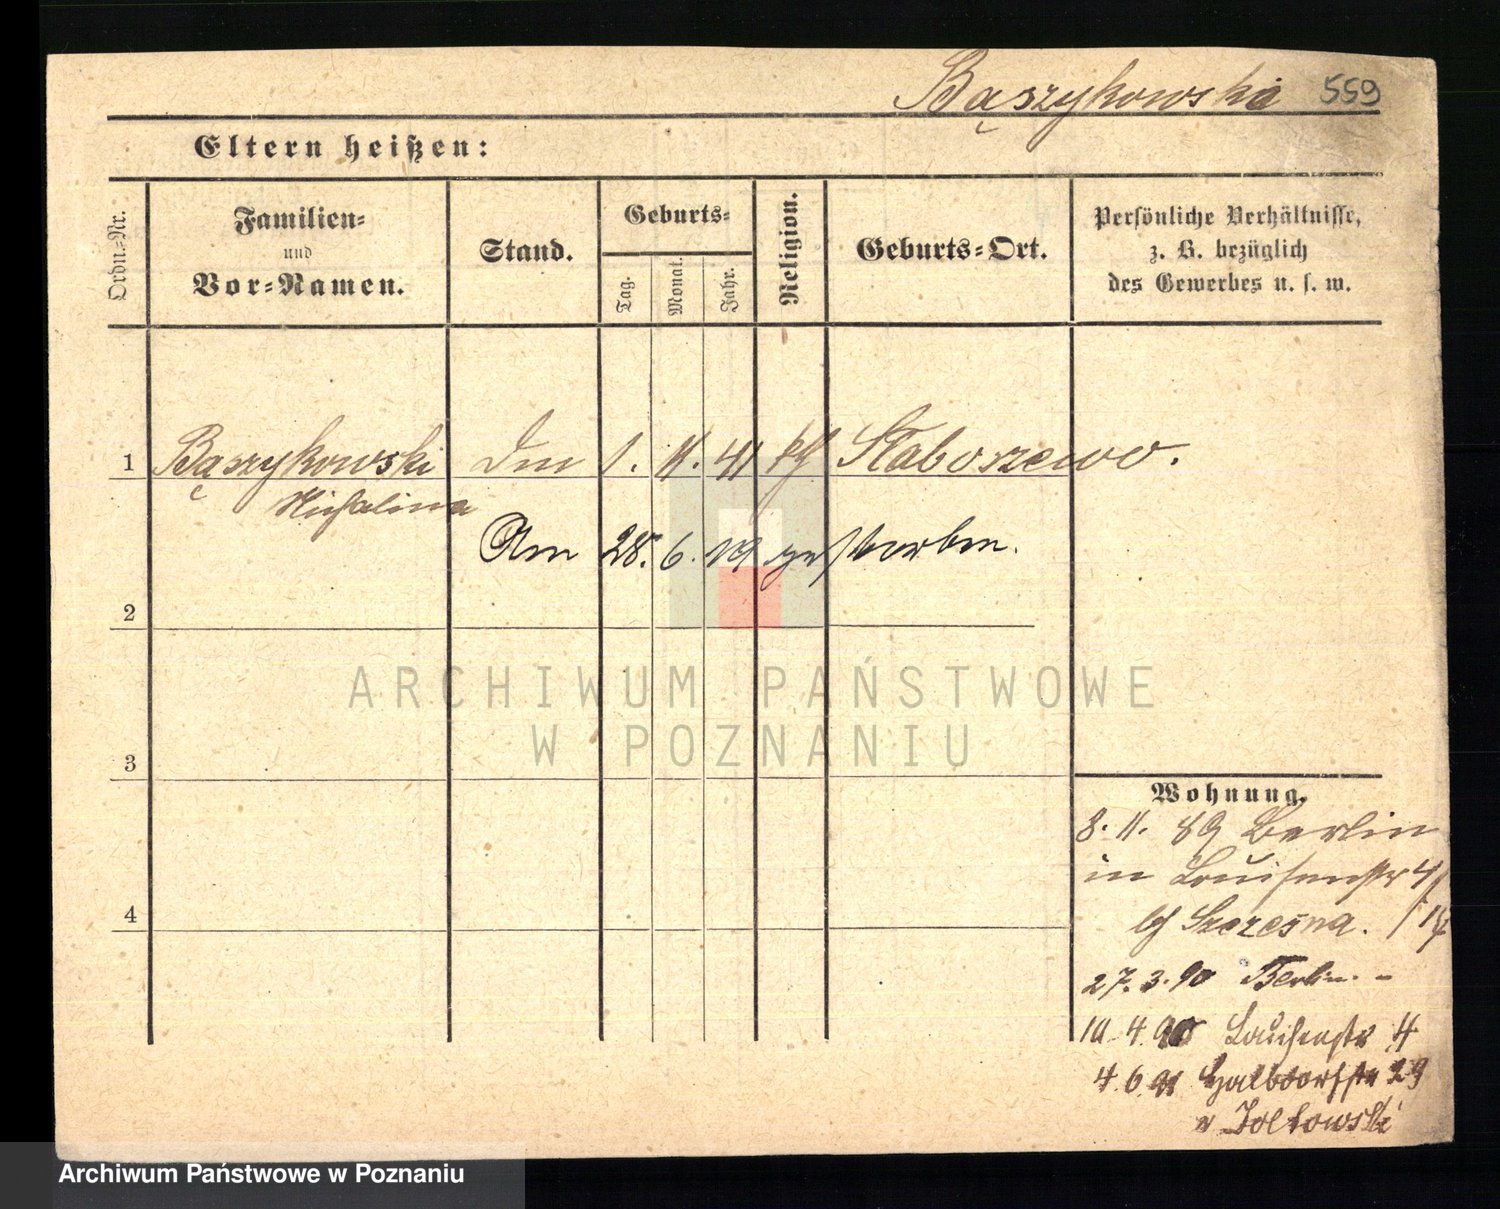 Bąszykowski 559
Eltern heißen:
Ordn.-Nr.
Familien-
und
Vor-Namen.
Stand.
Geburts-
Tag.
Monat.
Jahr.
Religion.
Geburts-Ort.
Persönliche Verhältnisse,
z. B. bezüglich
des Gewerbes u. s. w.
1 Bąszykowski 1. 11. 41 kth Staboszewo.
Michalina
Am 28. 6. 19 gestorben.
2
3
4
ARCHIWUM PAŃSTWOWE
W POZNANIU
Wohnung.
8. 11. 89 Berlin
in Louisenstr 4
bei Szczesna.
27. 3. 90 Berlin. -
10. 4. 90 Louisenstr 4
4. 6. 91 Halbdorfstr 29
Zoltowski
Archiwum Państwowe w Poznaniu